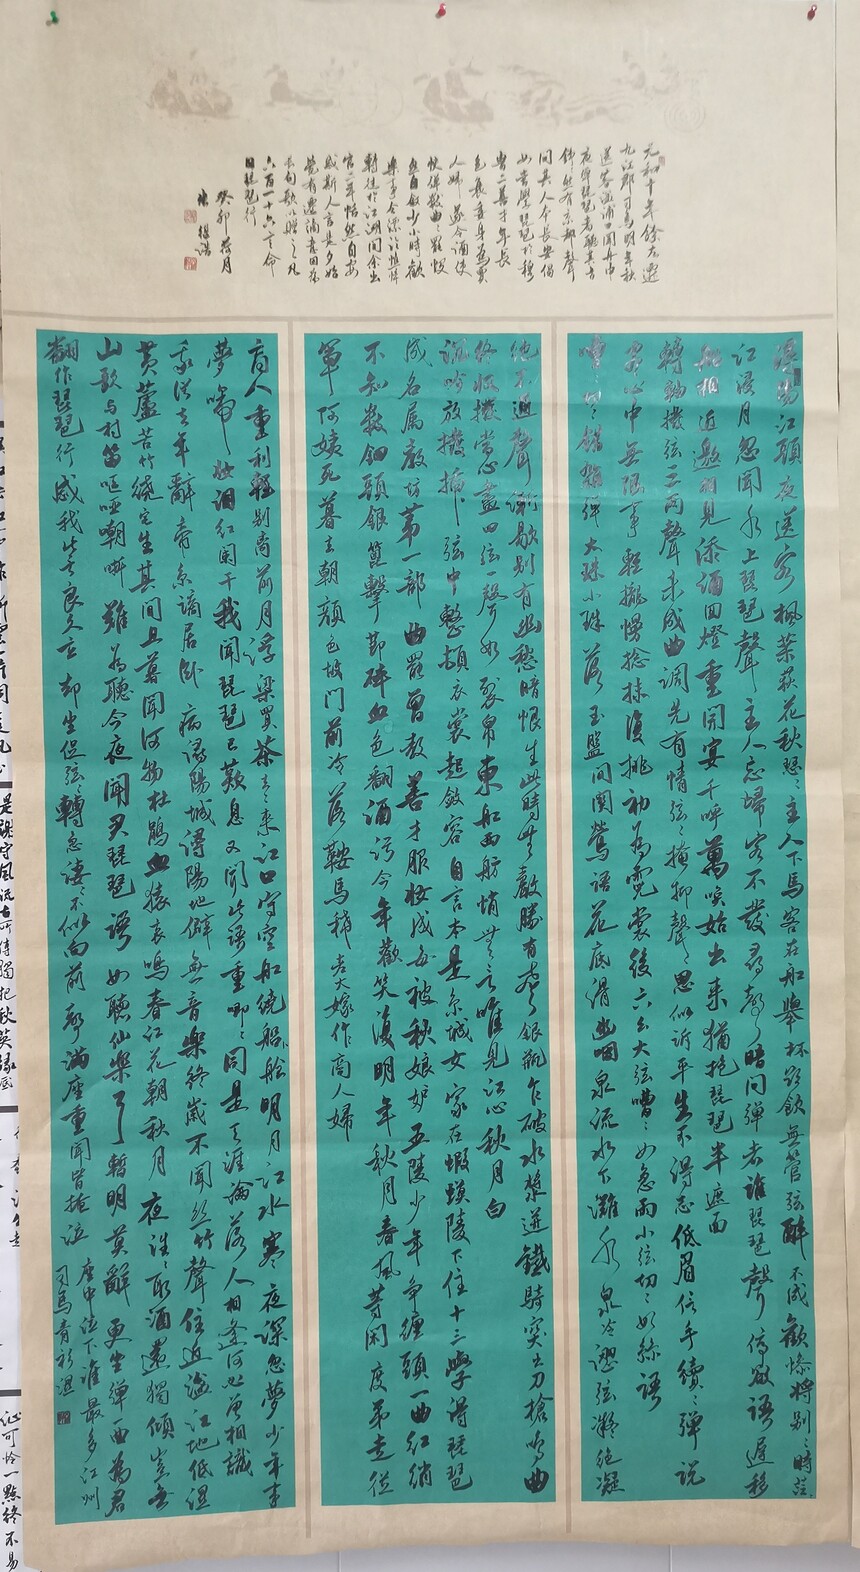 元和十年余左遷
九江郡司馬明年秋
送客湓浦口聞舟中
夜彈琵琶者聽其音
錚然有京都聲
問其人本長安倡
女嘗學琵琶於穆
曹二善才年長
色衰委身為賈
人婦遂令酒使
快彈數曲〻罷憫
然自敘少小時歡
樂事今漂淪憔悴
轉徙於江湖間余出
官二年恬然自安
感斯人言是夕始
覺有遷謫意因為
長句歌以贈之凡
六百一十六言命
曰琵琶行
癸卯荷月
浩
潯陽江頭夜送客楓葉荻花秋瑟〻主人下馬客在船舉杯欲飲無管弦醉不成歡慘將別〻時茫
江浸月忽聞水上琵琶聲主人忘歸客不發尋聲暗問彈者誰琵琶聲停欲語遲移
船相近邀相見添酒回燈重開宴千呼萬喚始出來猶抱琵琶半遮面
轉軸撥弦三兩聲未成曲調先有情弦〻掩抑聲〻思似訴平生不得志低眉信手續〻彈說
盡心中無限事輕攏慢捻抹復挑初為霓裳後六幺大弦嘈〻如急雨小弦切〻如絲語
嘈〻切〻錯雜彈大珠小珠落玉盤間關鶯語花底滑幽咽泉流水下灘水泉冷澀弦凝絕凝
絕不通聲漸歇別有幽愁暗恨生此時無聲勝有聲銀瓶乍破水漿迸鐵騎突出刀槍鳴曲
終收撥當心畫四弦一聲如裂帛東船西舫悄無言唯見江心秋月白
沉吟放撥插弦中整頓衣裳起斂容自言本是京城女家在蝦蟆陵下住十三學得琵琶
成名屬教坊第一部曲罷曾教善才服妝成每被秋娘妒五陵少年爭纏頭一曲紅綃
不知數鈿頭銀篦擊節碎血色翻酒污今年歡笑復明年秋月春風等閑度弟走從
軍阿姨死暮去朝顏色故門前冷落鞍馬稀老大嫁作商人婦
商人重利輕別離前月浮梁買茶去〻來江口守空船繞船艙明月江水寒夜深忽夢少年事
夢啼妝淚紅闌干我聞琵琶已歎息又聞此語重唧〻同是天涯淪落人相逢何必曾相識
我從去年辭帝京謫居臥病潯陽城潯陽地僻無音樂終歲不聞絲竹聲住近湓江地低濕
黃蘆苦竹繞宅生其間旦暮聞何物杜鵑血猿哀鳴春江花朝秋月夜往〻取酒還獨傾豈無
山歌與村笛嘔啞嘲哳難為聽今夜聞君琵琶語如聽仙樂耳暫明莫辭更坐彈一曲為君
翻作琵琶行感我此言良久立却坐促弦〻轉急淒〻不似向前聲滿座重聞皆掩泣座中泣下誰最多江州
司馬青衫濕